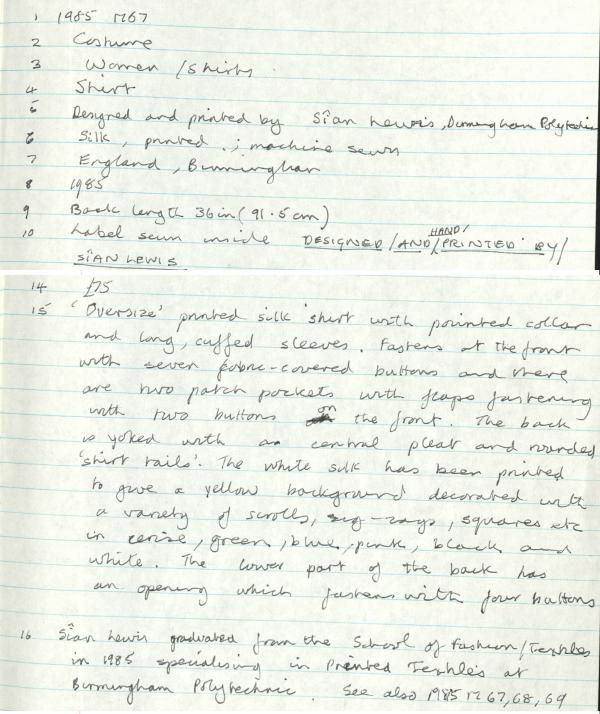 1 1985 M67
2 Costume
3 Women / Shirts
4 Shirt
5 Designed and printed by Siân Lewis, Birmingham Polytechnic
6 Silk, printed.; machine sewn
7 England, Birmingham
8 1985
9 Back length 36in (91.5cm)
10 Label sewn inside DESIGNED / AND / HAND / PRINTED BY /
SIÂN LEWIS
14 £75
15 'Oversize' printed silk shirt with pointed collar
and long, cuffed sleeves. Fastens at the front
with seven fabric-covered buttons and there
are two patch pockets with flaps fastening
with two buttons on the front. The back
is yoked with a central pleat and rounded
'shirt tails'. The white silk has been printed
to give a yellow background decorated with
a variety of scrolls, zig-zags, squares etc
in cerise, green, blue, pink, black and
white. The lower part of the back has
an opening which fastens with four buttons
16 Siân Lewis graduated from the School of Fashion/Textiles
in 1985 specialising in Printed Textiles at
Birmingham Polytechnic. See also 1985 M67, 68, 69